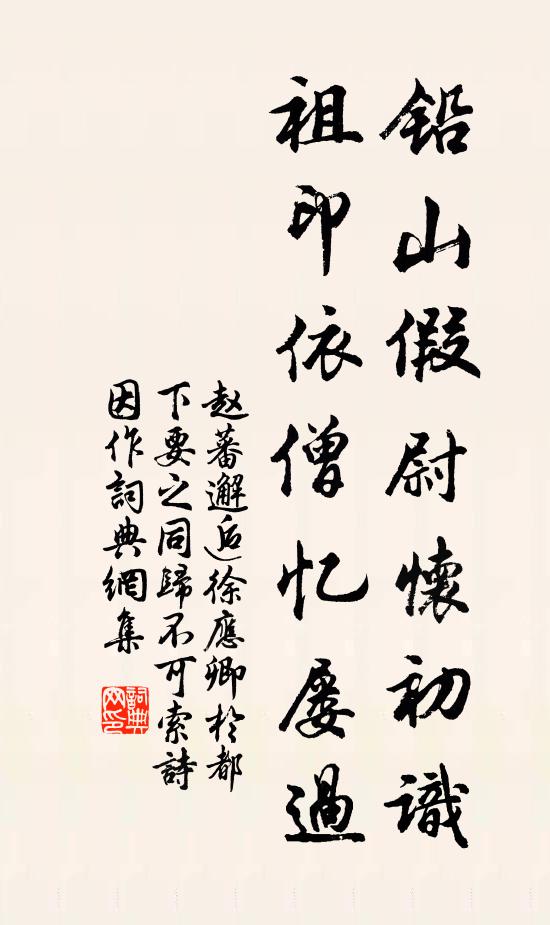 铅山假尉懷初識
祖印依僧忆屡過
赵蕃邂逅徐應卿於都
下要之同歸不可索詩
因作詞典網集
詞典網印